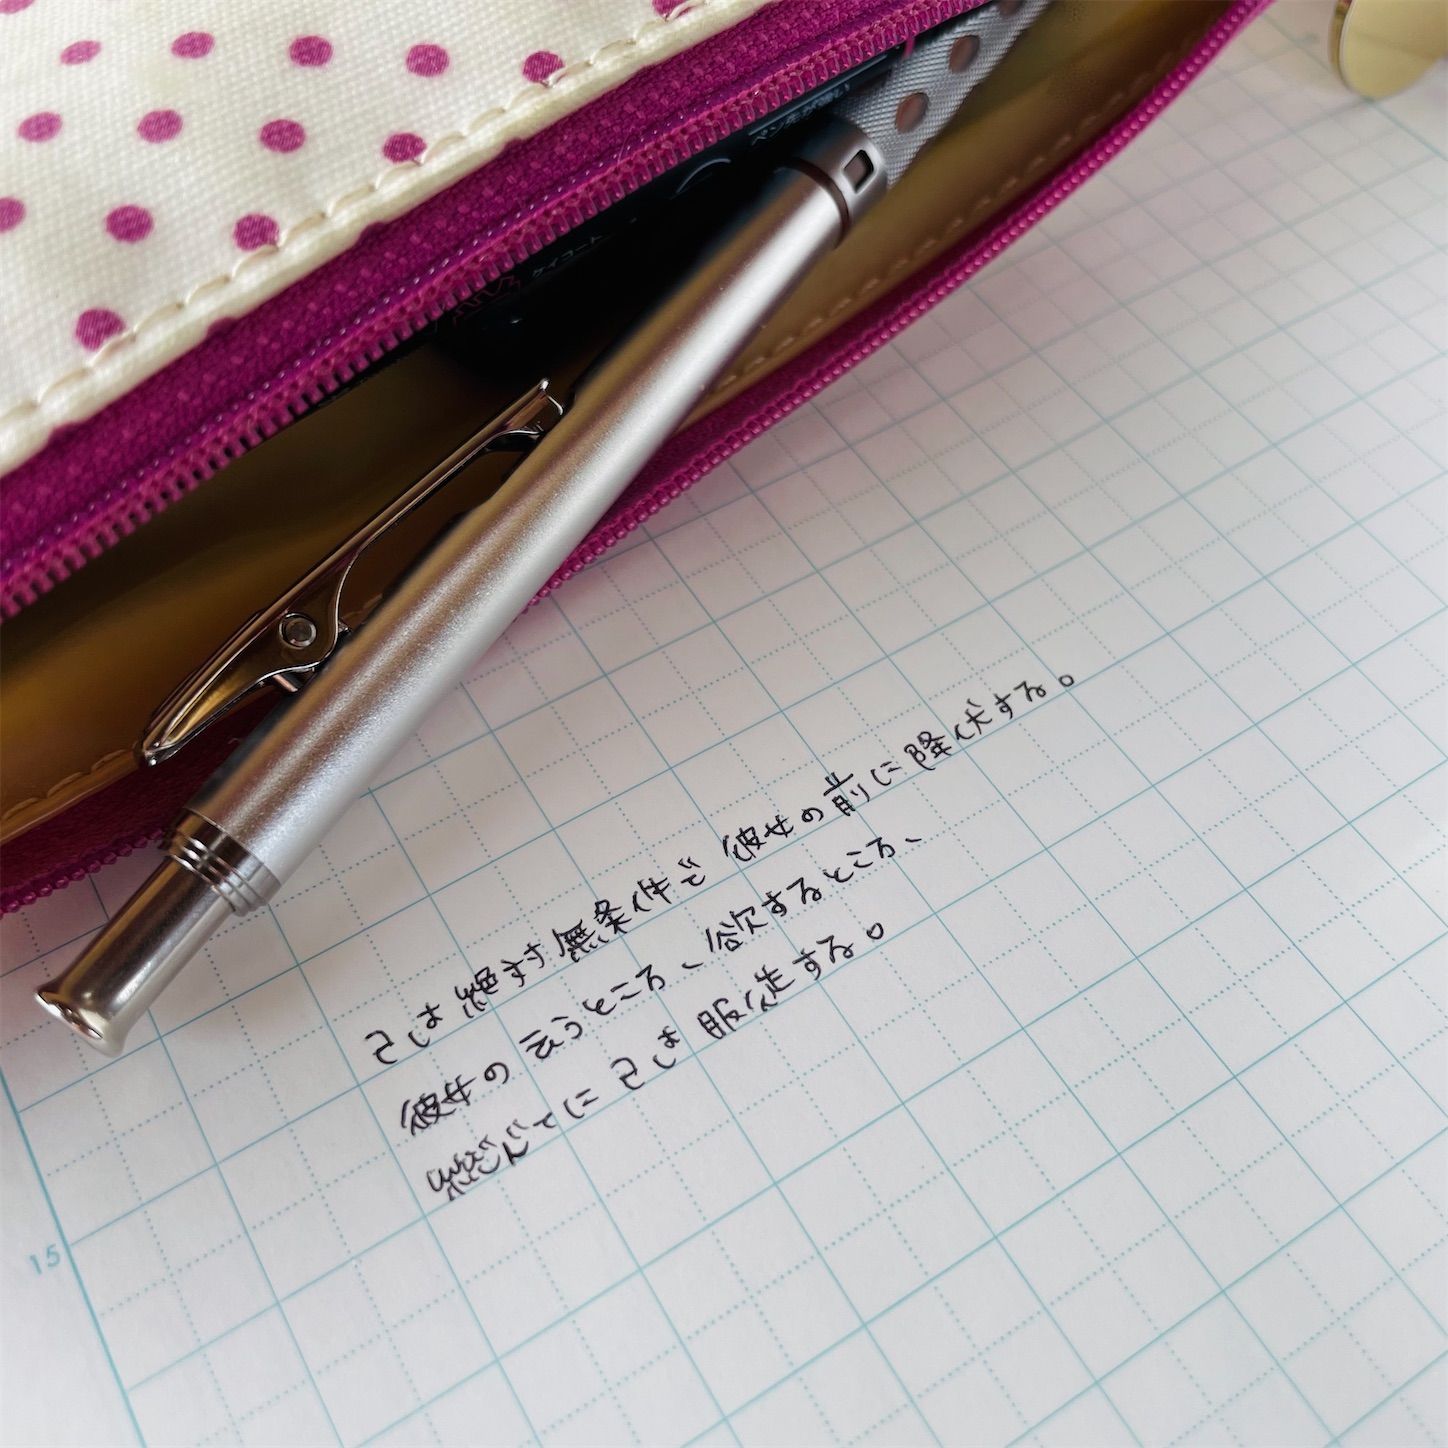 ペン先が強い
ケイコート
己は絶対無条件で彼女の前に降伏する。
彼女の云うところ、欲するところ、
総べてに己は服従する。
15